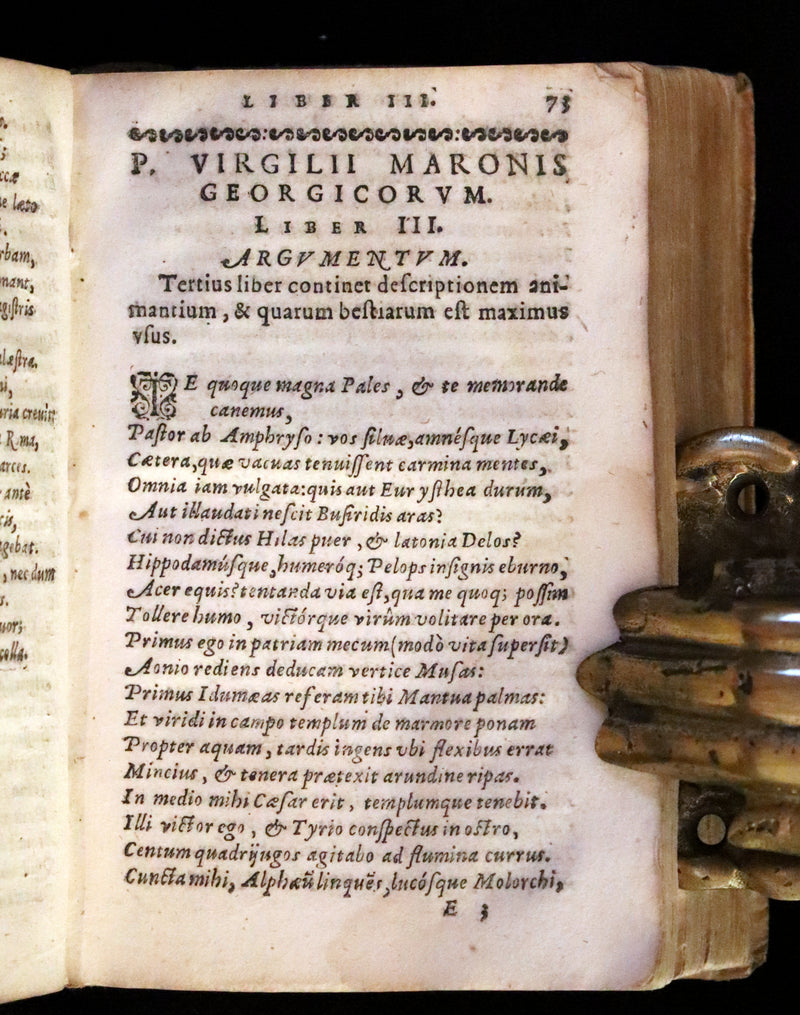 o.
;
ccæ
e læto
s.
rbam,
mant,
gistris
læstra.
ui,
uria creuit
Roma,
arces.
antè
cis,
gebat.
, nec dum
s.
uor;
colla.
LIBER III. 73
P. VIRGILII MARONIS
GEORGICORVM.
LIBER III.
ARGVMENTVM.
Tertius liber continet deſcriptionem ani-
mantium, & quarum beſtiarum eſt maximus
vſus.
TE quoque magna Pales, & te memorande
canemus,
Paſtor ab Amphryſo: vos ſiluæ, amnéſque Lycæi,
Cætera, quæ vacuas tenuiſſent carmina mentes,
Omnia iam vulgata: quis aut Euryſthea durum,
Aut illaudati neſcit Buſiridis aras?
Cui non dictus Hilas puer, & latonia Delos?
Hippodamúſque, humeróq; Pelops inſignis eburno,
Acer equis? tentanda via eſt, qua me quoq; poſſim
Tollere humo, victórque virûm volitare per ora.
Primus ego in patriam mecum (modò vita ſuperſit)
Aonio rediens deducam vertice Muſas:
Primus Idumæas referam tibi Mantua palmas:
Et viridi in campo templum de marmore ponam
Propter aquam, tardis ingens vbi flexibus errat
Mincius, & tenera prætexit arundine ripas.
In medio mihi Cæſar erit, templumque tenebit.
Illi victor ego, & Tyrio conſpectus in oſtro,
Centum quadrijugos agitabo ad flumina currus.
Cuncta mihi, Alphæü linquẽs, lucóſque Molorchi,
E 3